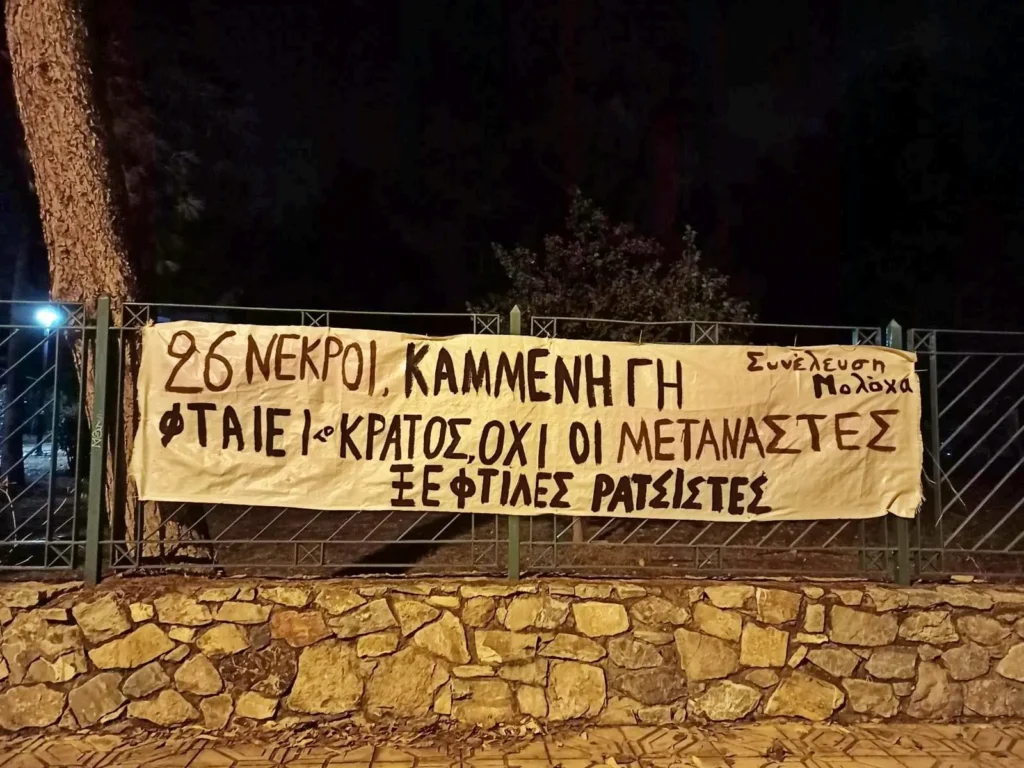 26 ΝΕΚΡΟΙ, ΚΑΜΜΕΝΗ ΓΗ
Συνέλευση
Μολόχα
ΦΤΑΙΕΙ το ΚΡΑΤΟΣ, ΟΧΙ ΟΙ ΜΕΤΑΝΑΣΤΕΣ
ΞΕΦΤΙΛΕΣ ΡΑΤΣΙΣΤΕΣ